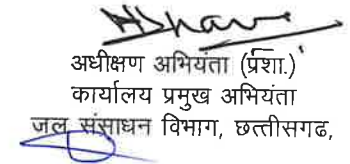 अधीक्षण अभियंता (प्रशा.)
कार्यालय प्रमुख अभियंता
जल संसाधन विभाग, छत्तीसगढ,